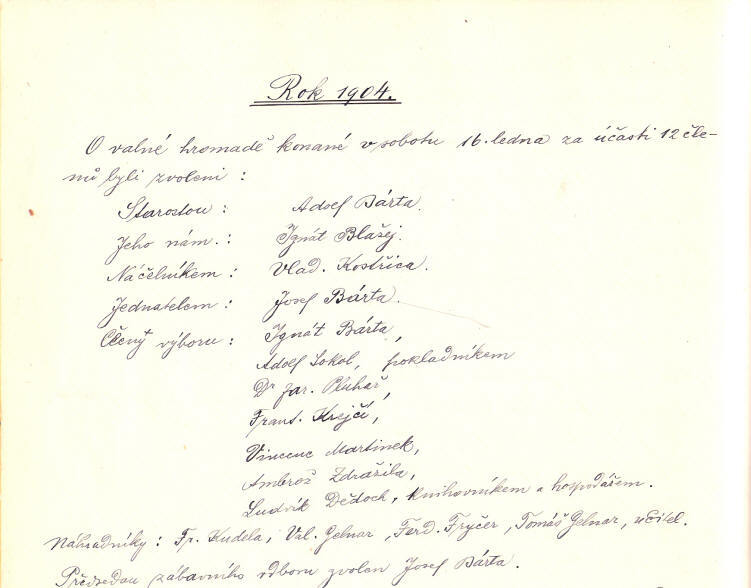 Rok 1904.
O valné hromadě konané v sobotu 16. ledna za účasti 12 čle-
nů byli zvoleni :
Starostou : Adolf Bárta.
Jeho nám. : Ignát Blažej.
Náčelníkem : Vlad. Kostřica.
Jednatelem : Josef Bárta.
Členy výboru : Ignát Bárta,
Adolf Sokol, pokladníkem
Dr Jar. Pluhař,
Frant. Krejčí,
Vincenc Martinek,
Ambrož Zdražila,
Ludvík Dědoch, knihovníkem a hospodářem.
Náhradníky : Fr. Kudela, Val. Gelnar, Ferd. Fryčer, Tomáš Gelnar, učitel.
Předsedou zábavního odboru zvolen Josef Bárta.